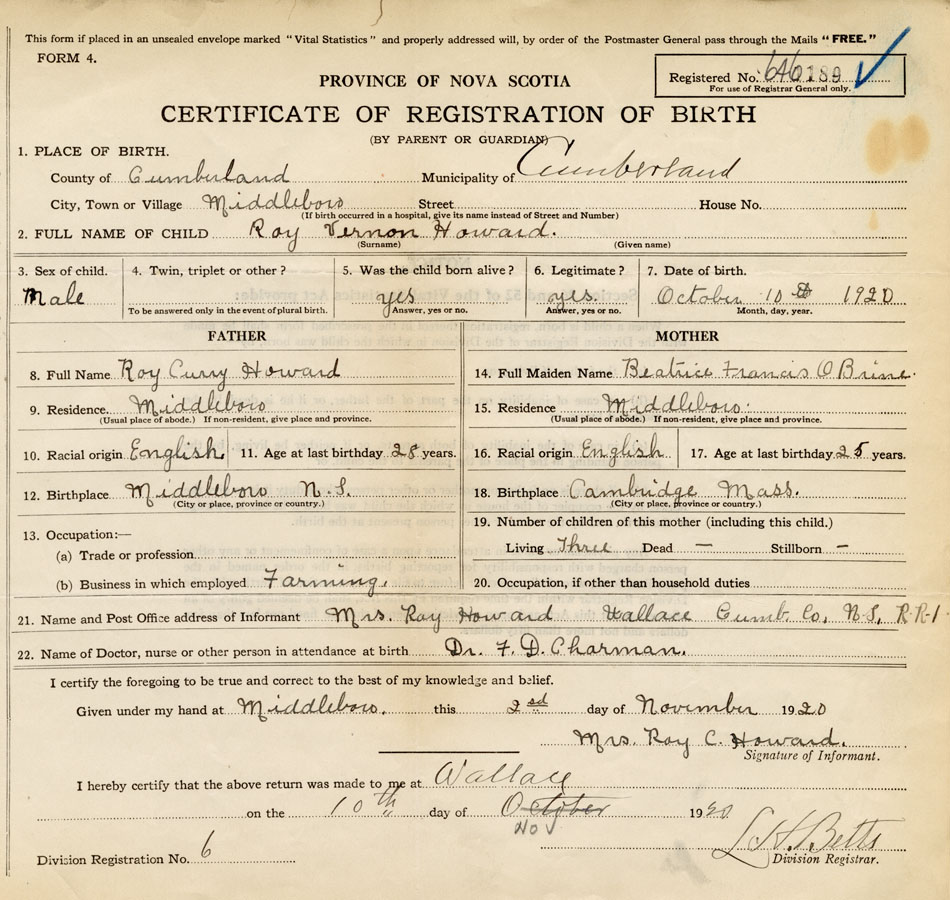 This form if placed in an unsealed envelope marked "Vital Statistics" and properly addressed will, by order of the Postmaster General pass through the Mails "FREE."
FORM 4.
Registered No. 646189
For use of Registrar General only.
PROVINCE OF NOVA SCOTIA
CERTIFICATE OF REGISTRATION OF BIRTH
(BY PARENT OR GUARDIAN)
1. PLACE OF BIRTH.
County of Cumberland Municipality of Cumberland
City, Town or Village Middleboro Street House No.
(If birth occurred in a hospital, give its name instead of Street and Number)
2. FULL NAME OF CHILD Roy Vernon Howard.
(Surname) (Given name)
3. Sex of child. 4. Twin, triplet or other? 5. Was the child born alive? 6. Legitimate? 7. Date of birth.
Male yes yes. October 10th 1920
To be answered only in the event of plural birth. Answer, yes or no. Answer, yes or no. Month, day, year.
FATHER MOTHER
8. Full Name Roy Curry Howard 14. Full Maiden Name Beatrice Francis O Brine.
9. Residence. Middleboro 15. Residence Middleboro.
(Usual place of abode.) If non-resident, give place and province. (Usual place of abode.) If non-resident, give place and province.
10. Racial origin English 11. Age at last birthday 28 years. 16. Racial origin English 17. Age at last birthday 25 years.
12. Birthplace Middleboro N.S. 18. Birthplace Cambridge Mass.
(City or place, province or country.) (City or place, province or country.)
13. Occupation:— 19. Number of children of this mother (including this child.)
(a) Trade or profession Living Three Dead — Stillborn —
(b) Business in which employed Farming. 20. Occupation, if other than household duties
21. Name and Post Office address of Informant Mrs. Ray Howard Wallace Cumb. Co, N.S. R.R.1
22. Name of Doctor, nurse or other person in attendance at birth Dr. F. D. Charman.
I certify the foregoing to be true and correct to the best of my knowledge and belief.
Given under my hand at Middleboro. this 2sd day of November 1920
Mrs. Roy C. Howard.
Signature of Informant.
I hereby certify that the above return was made to me at Wallace
on the 10th day of October 1920
Nov
L. H. Betts
Division Registration No. 6 Division Registrar.